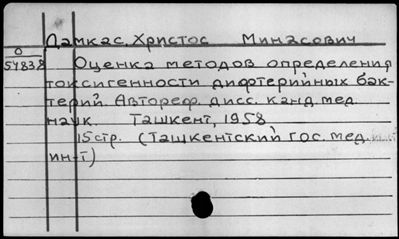 Дамкас, Христос Минасович
0
54838
Оценка методов определения
токсигенности дифтерийных бак-
терий. Автореф. дисс. канд. мед.
наук. Ташкент, 1958,
15 стр. (Ташкентский гос. мед.
ин-т)